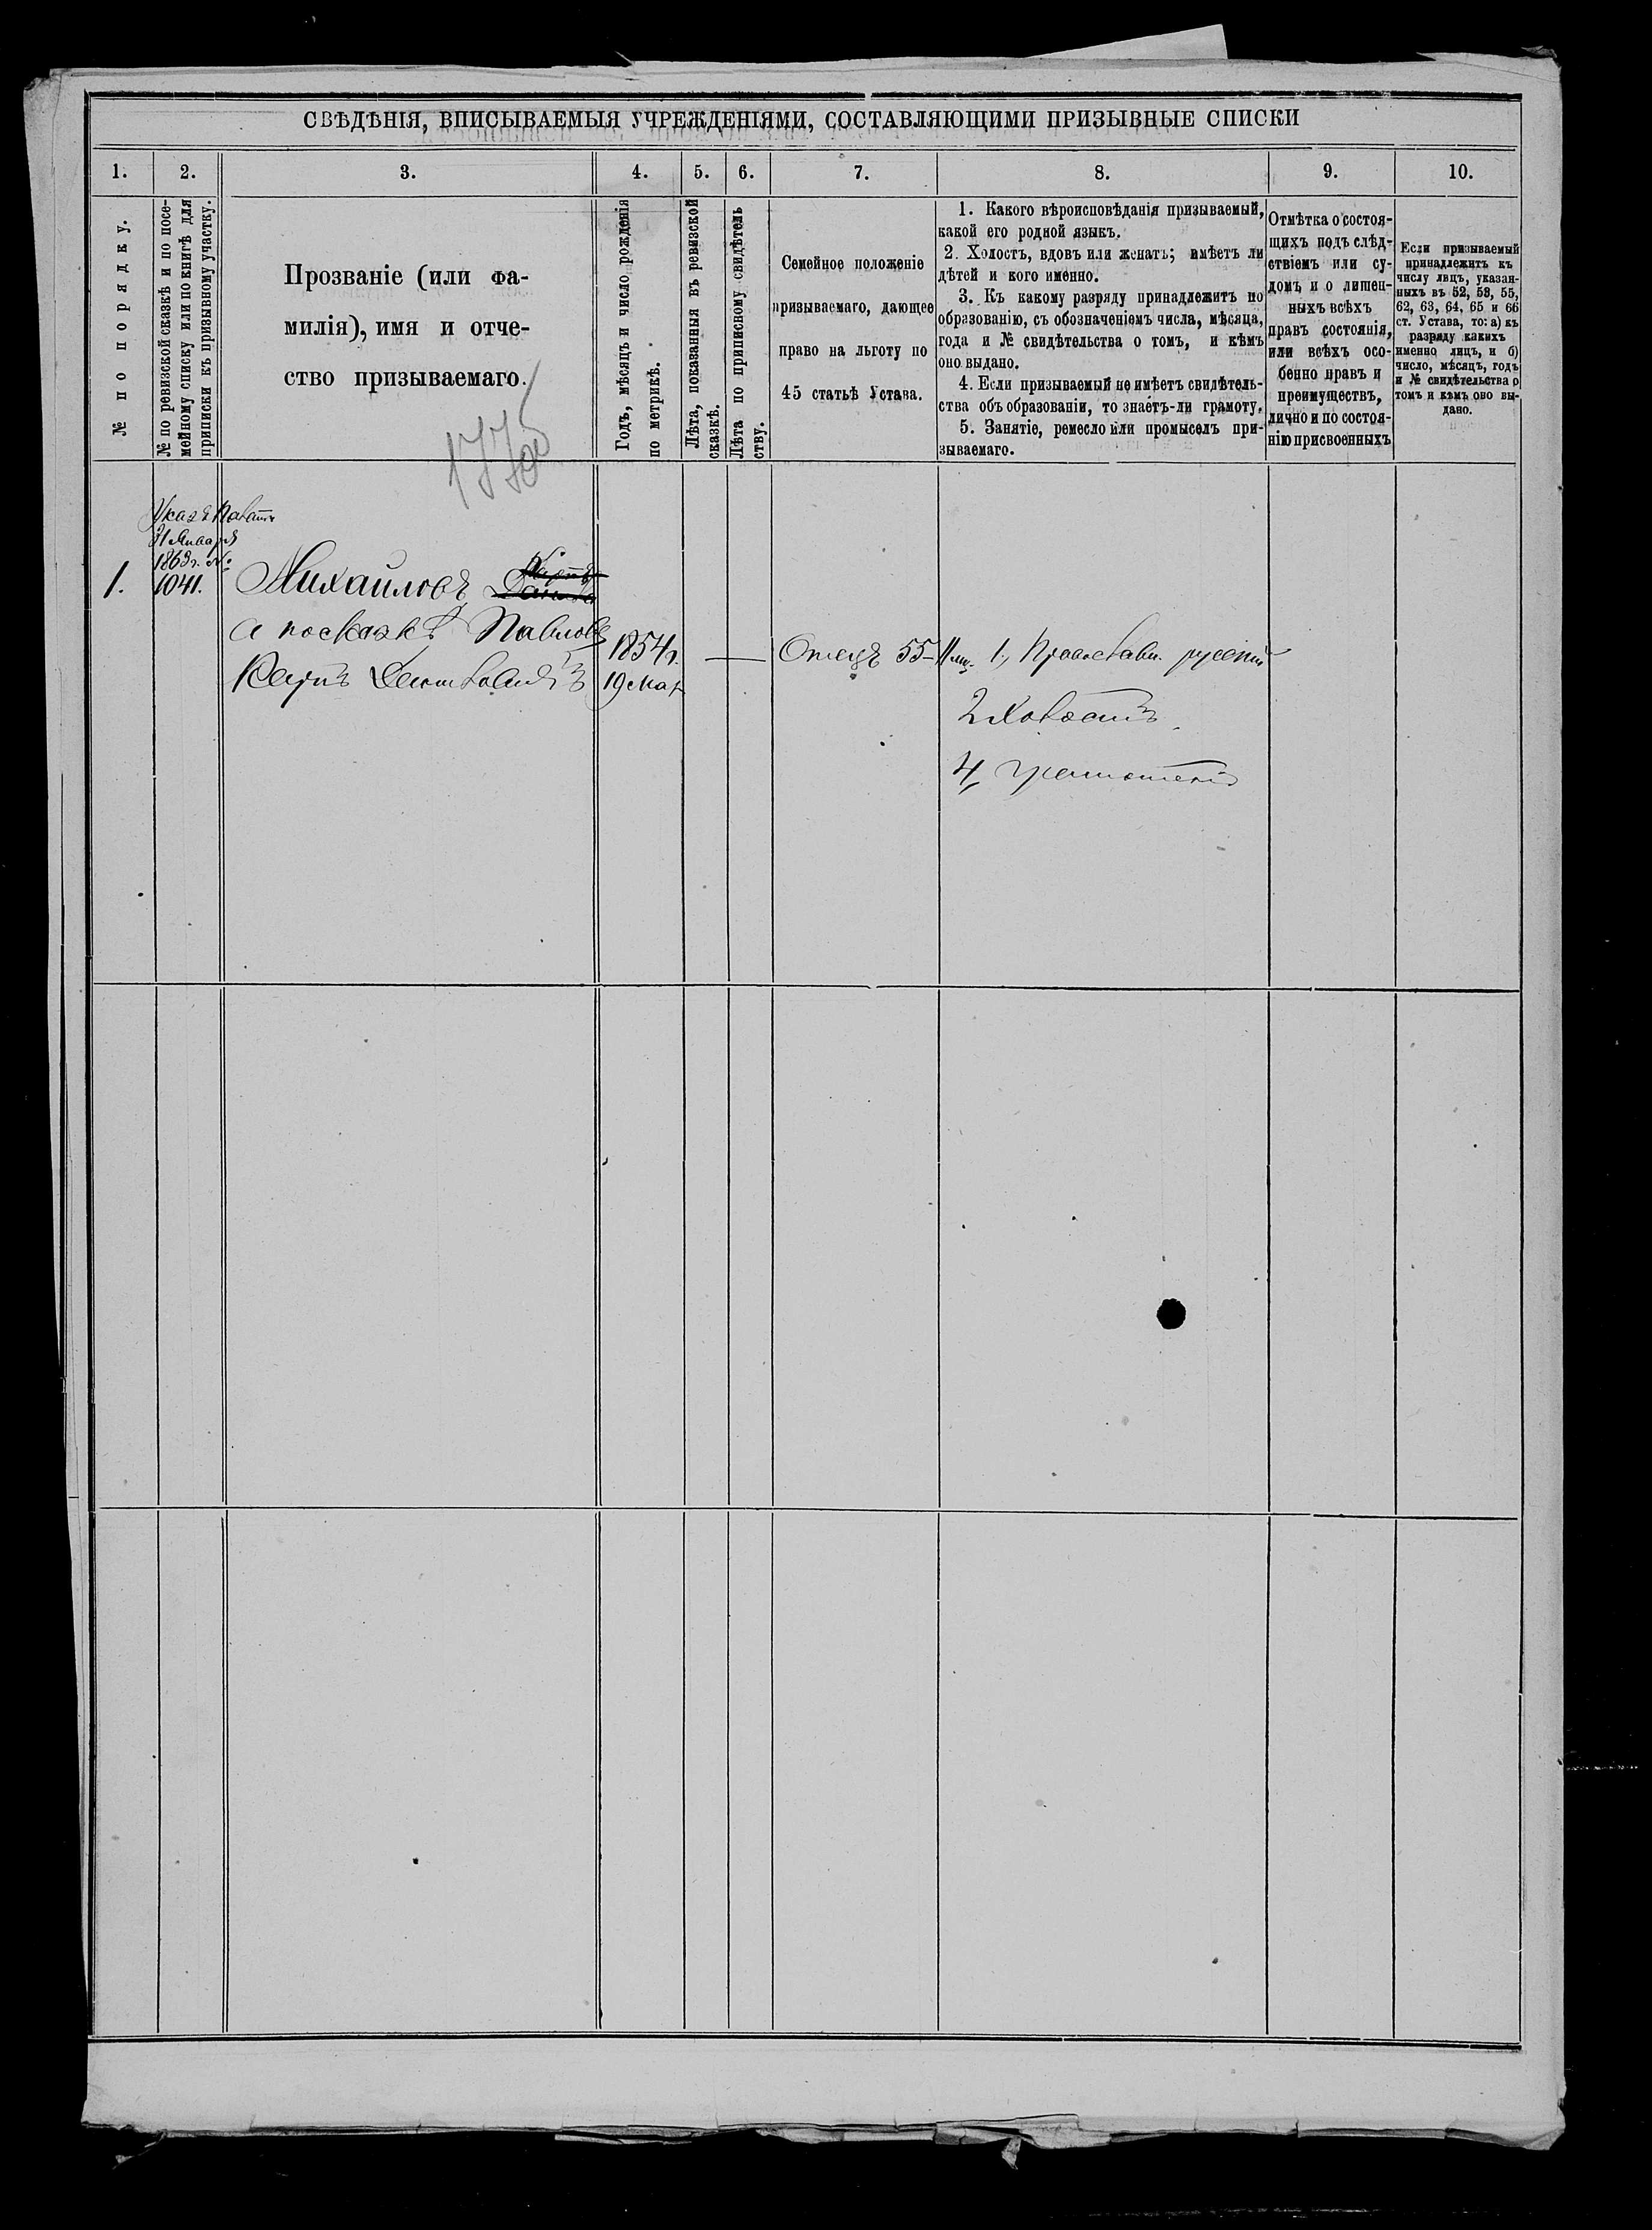 СВѢДѢНІЯ, ВПИСЫВАЕМЫЯ УЧРЕЖДЕНІЯМИ, СОСТАВЛЯЮЩИМИ ПРИЗЫВНЫЕ СПИСКИ
1.
2.
3.
4.
5.
6.
7.
8.
9.
10.
№ по порядку.
№ по ревизской сказкѣ и по посе-
мейному списку или по книгѣ для
приписки къ призывному участку.
Прозваніе (или фа-
милія), имя и отче-
ство призываемаго.
Годъ, мѣсяцъ и число рожденія
по метрикѣ.
Лѣта, показанныя въ ревизской
сказкѣ.
Лѣта по приписному свидѣтель
ству.
Семейное положеніе
призываемаго, дающее
право на льготу по
45 статьѣ Устава.
1. Какого вѣроисповѣданія призываемый,
какой его родной языкъ.
2. Холостъ, вдовъ или женатъ; имѣетъ ли
дѣтей и кого именно.
3. Къ какому разряду принадлежитъ по
образованію, съ обозначеніемъ числа, мѣсяца,
года и № свидѣтельства о томъ, и кѣмъ
оно выдано.
4. Если призываемый не имѣетъ свидѣтель-
ства объ образованіи, то знаетъ-ли грамоту.
5. Занятіе, ремесло или промыселъ при-
зываемаго.
Отмѣтка о состоя-
щихъ подъ слѣд-
ствіемъ или су-
домъ и о лишен-
ныхъ всѣхъ
правъ состоянія,
или всѣхъ осо-
бенно правъ и
преимуществъ,
лично и по состоя-
нію присвоенныхъ
Если призываемый
принадлежитъ къ
числу лицъ, указан-
ныхъ въ 52, 53, 55,
62, 63, 64, 65 и 66
ст. Устава, то: а) къ
разряду какихъ
именно лицъ, и б)
число, мѣсяцъ, годъ
и № свидѣтельства о
томъ и кѣмъ оно вы-
дано.
1.
Указъ Палаты
31 Января
1863 г. №
1041.
Михайловъ
а по сказкѣ Павловъ
Карпъ
1854 г.
19 Мар
Отецъ 55
1, Православн. русскій
2 Холостъ
4, грамотенъ